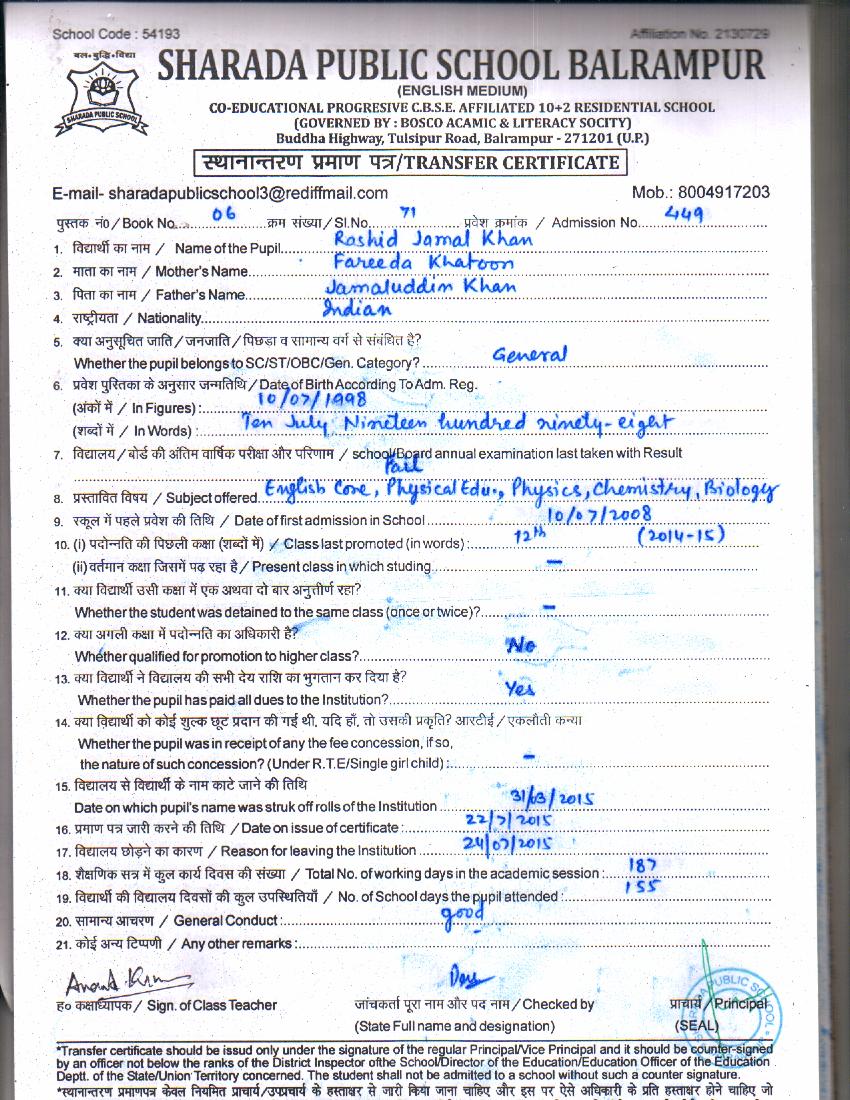 School Code : 54193
Affiliation No. 2130729
बल•बुद्धि•विद्या
SHARADA PUBLIC SCHOOL
SHARADA PUBLIC SCHOOL BALRAMPUR
(ENGLISH MEDIUM)
CO-EDUCATIONAL PROGRESIVE C.B.S.E. AFFILIATED 10+2 RESIDENTIAL SCHOOL
(GOVERNED BY : BOSCO ACAMIC & LITERACY SOCITY)
Buddha Highway, Tulsipur Road, Balrampur - 271201 (U.P.)
स्थानान्तरण प्रमाण पत्र/TRANSFER CERTIFICATE
E-mail- sharadapublicschool3@rediffmail.com Mob.: 8004917203
पुस्तक नं0 / Book No. 06 क्रम संख्या / Sl.No. 71 प्रवेश क्रमांक / Admission No. 449
1. विद्यार्थी का नाम / Name of the Pupil Rashid Jamal Khan
2. माता का नाम / Mother's Name Fareeda Khatoon
3. पिता का नाम / Father's Name Jamaluddin Khan
4. राष्ट्रीयता / Nationality Indian
5. क्या अनुसूचित जाति / जनजाति / पिछड़ा व सामान्य वर्ग से संबंधित है?
Whether the pupil belongs to SC/ST/OBC/Gen. Category? General
6. प्रवेश पुस्तिका के अनुसार जन्मतिथि / Date of Birth According To Adm. Reg.
(अंकों में / In Figures) : 10/07/1998
(शब्दों में / In Words) : Ten July Nineteen hundred ninety-eight
7. विद्यालय / बोर्ड की अंतिम वार्षिक परीक्षा और परिणाम / school/Board annual examination last taken with Result
Fail
8. प्रस्तावित विषय / Subject offered English Core, Physical Edu., Physics, Chemistry, Biology
9. स्कूल में पहले प्रवेश की तिथि / Date of first admission in School 10/07/2008
10. (i) पदोन्नति की पिछली कक्षा (शब्दों में) / Class last promoted (in words) : 12th (2014-15)
(ii) वर्तमान कक्षा जिसमें पढ़ रहा है / Present class in which studing –
11. क्या विद्यार्थी उसी कक्षा में एक अथवा दो बार अनुत्तीर्ण रहा?
Whether the student was detained to the same class (once or twice)? –
12. क्या अगली कक्षा में पदोन्नति का अधिकारी है?
Whether qualified for promotion to higher class? No
13. क्या विद्यार्थी ने विद्यालय की सभी देय राशि का भुगतान कर दिया है?
Whether the pupil has paid all dues to the Institution? Yes
14. क्या विद्यार्थी को कोई शुल्क छूट प्रदान की गई थी, यदि हाँ, तो उसकी प्रकृति? आरटीई / एकलौती कन्या
Whether the pupil was in receipt of any the fee concession, if so,
the nature of such concession? (Under R.T.E/Single girl child) : –
15. विद्यालय से विद्यार्थी के नाम काटे जाने की तिथि
Date on which pupil's name was struk off rolls of the Institution 31/03/2015
16. प्रमाण पत्र जारी करने की तिथि / Date on issue of certificate : 22/7/2015
17. विद्यालय छोड़ने का कारण / Reason for leaving the Institution 24/07/2015
18. शैक्षणिक सत्र में कुल कार्य दिवस की संख्या / Total No. of working days in the academic session : 187
19. विद्यार्थी की विद्यालय दिवसों की कुल उपस्थितियाँ / No. of School days the pupil attended : 155
20. सामान्य आचरण / General Conduct : good
21. कोई अन्य टिप्पणी / Any other remarks :
ह० कक्षाध्यापक / Sign. of Class Teacher जांचकर्ता पूरा नाम और पद नाम / Checked by प्राचार्य / Principal
(State Full name and designation) (SEAL)
*Transfer certificate should be issued only under the signature of the regular Principal/Vice Principal and it should be counter-signed
by an officer not below the ranks of the District Inspector ofthe School/Director of the Education/Education Officer of the Education
Deptt. of the State/Union Territory concerned. The student shall not be admitted to a school without such a counter signature.
*स्थानान्तरण प्रमाणपत्र केवल नियमित प्राचार्य/उपप्राचार्य के हस्ताक्षर से जारी किया जाना चाहिए और इस पर ऐसे अधिकारी के प्रति हस्ताक्षर होने चाहिए जो